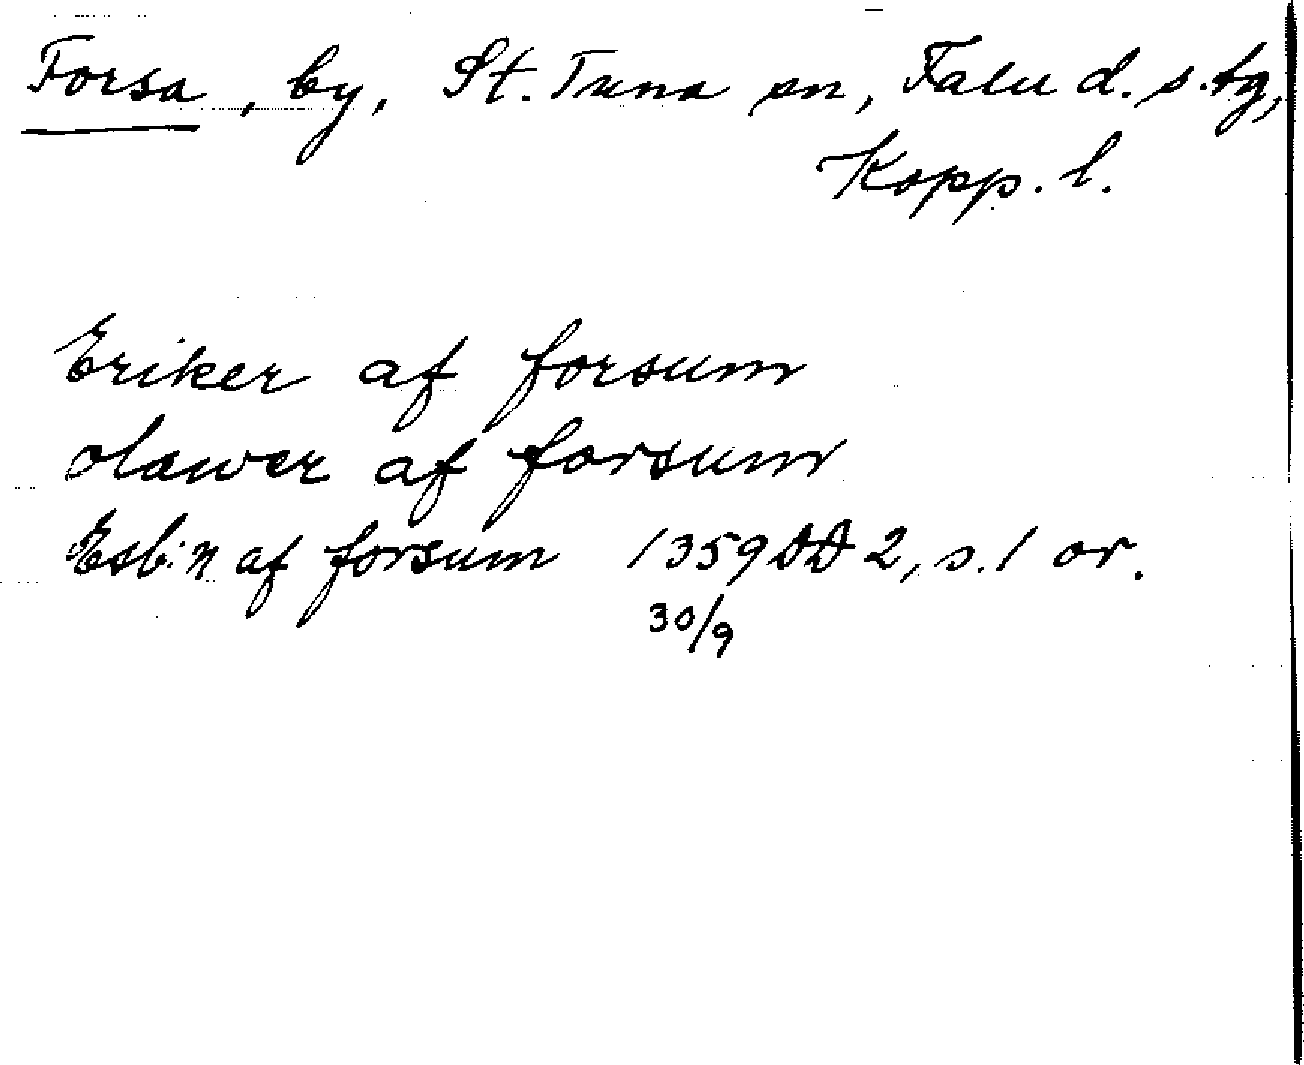 Forsa, by, St. Tuna sn, Falu d. s. tg,
Kopp. l.
Eriker af forsum
olawer af forsum
Esb:n af forsum 1359 DD 2, s. 1 or.
30/9